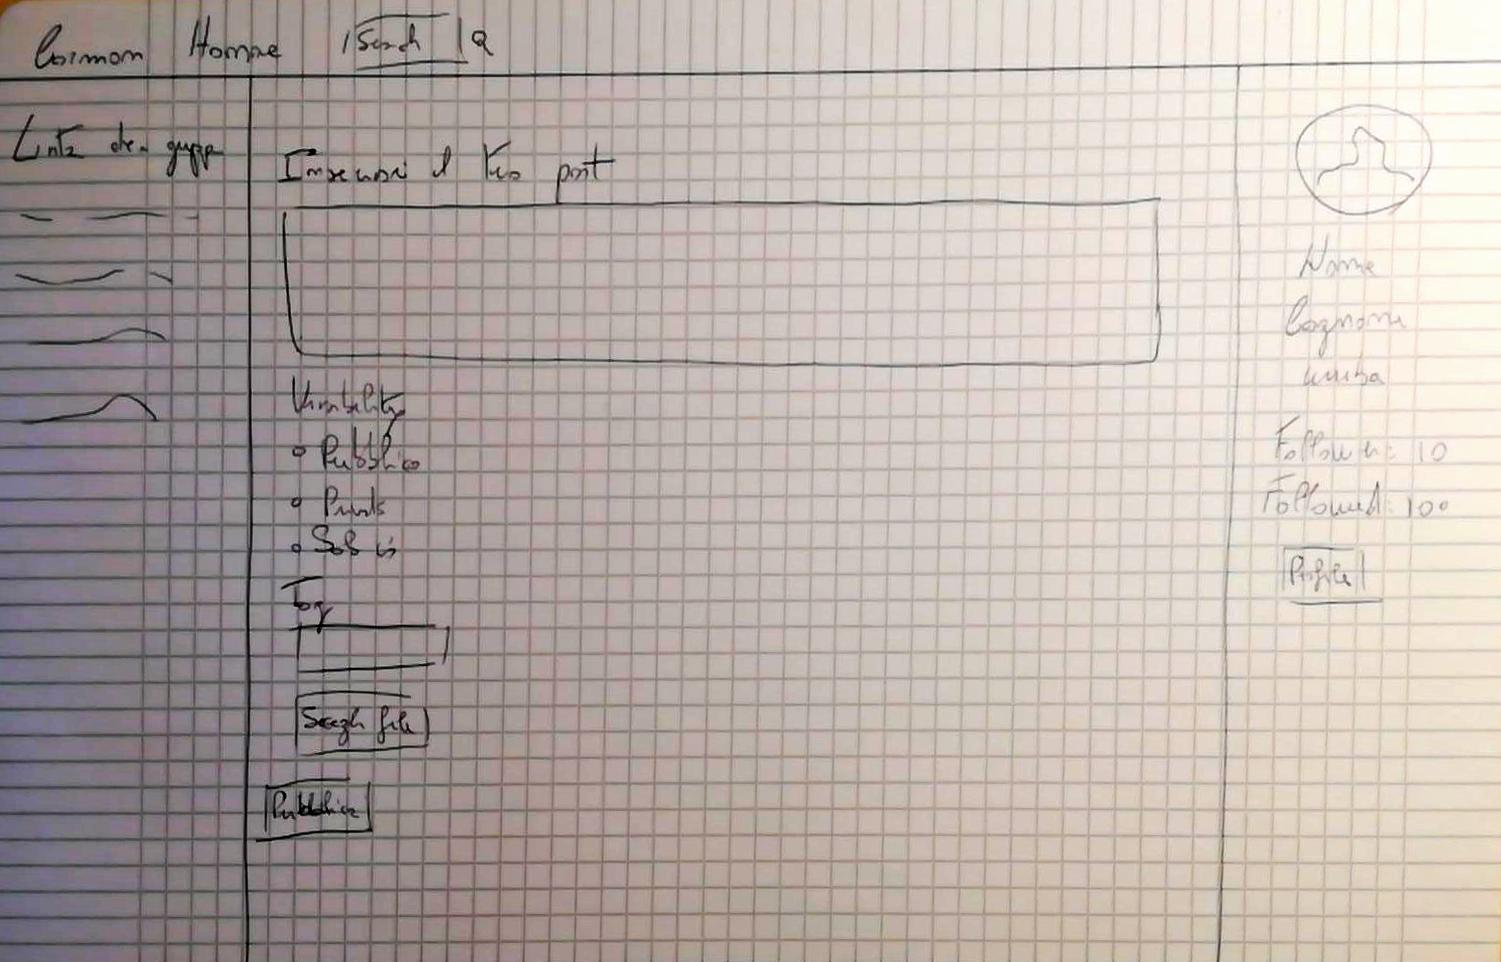 Common Home Search
Lista dei gruppi
Inserisci il tuo post
Visibility
Pubblico
Privato
Solo
Tag
Scegli file
Pubblica
Nome
Cognome
Follower: 10
Followed: 100
Profile